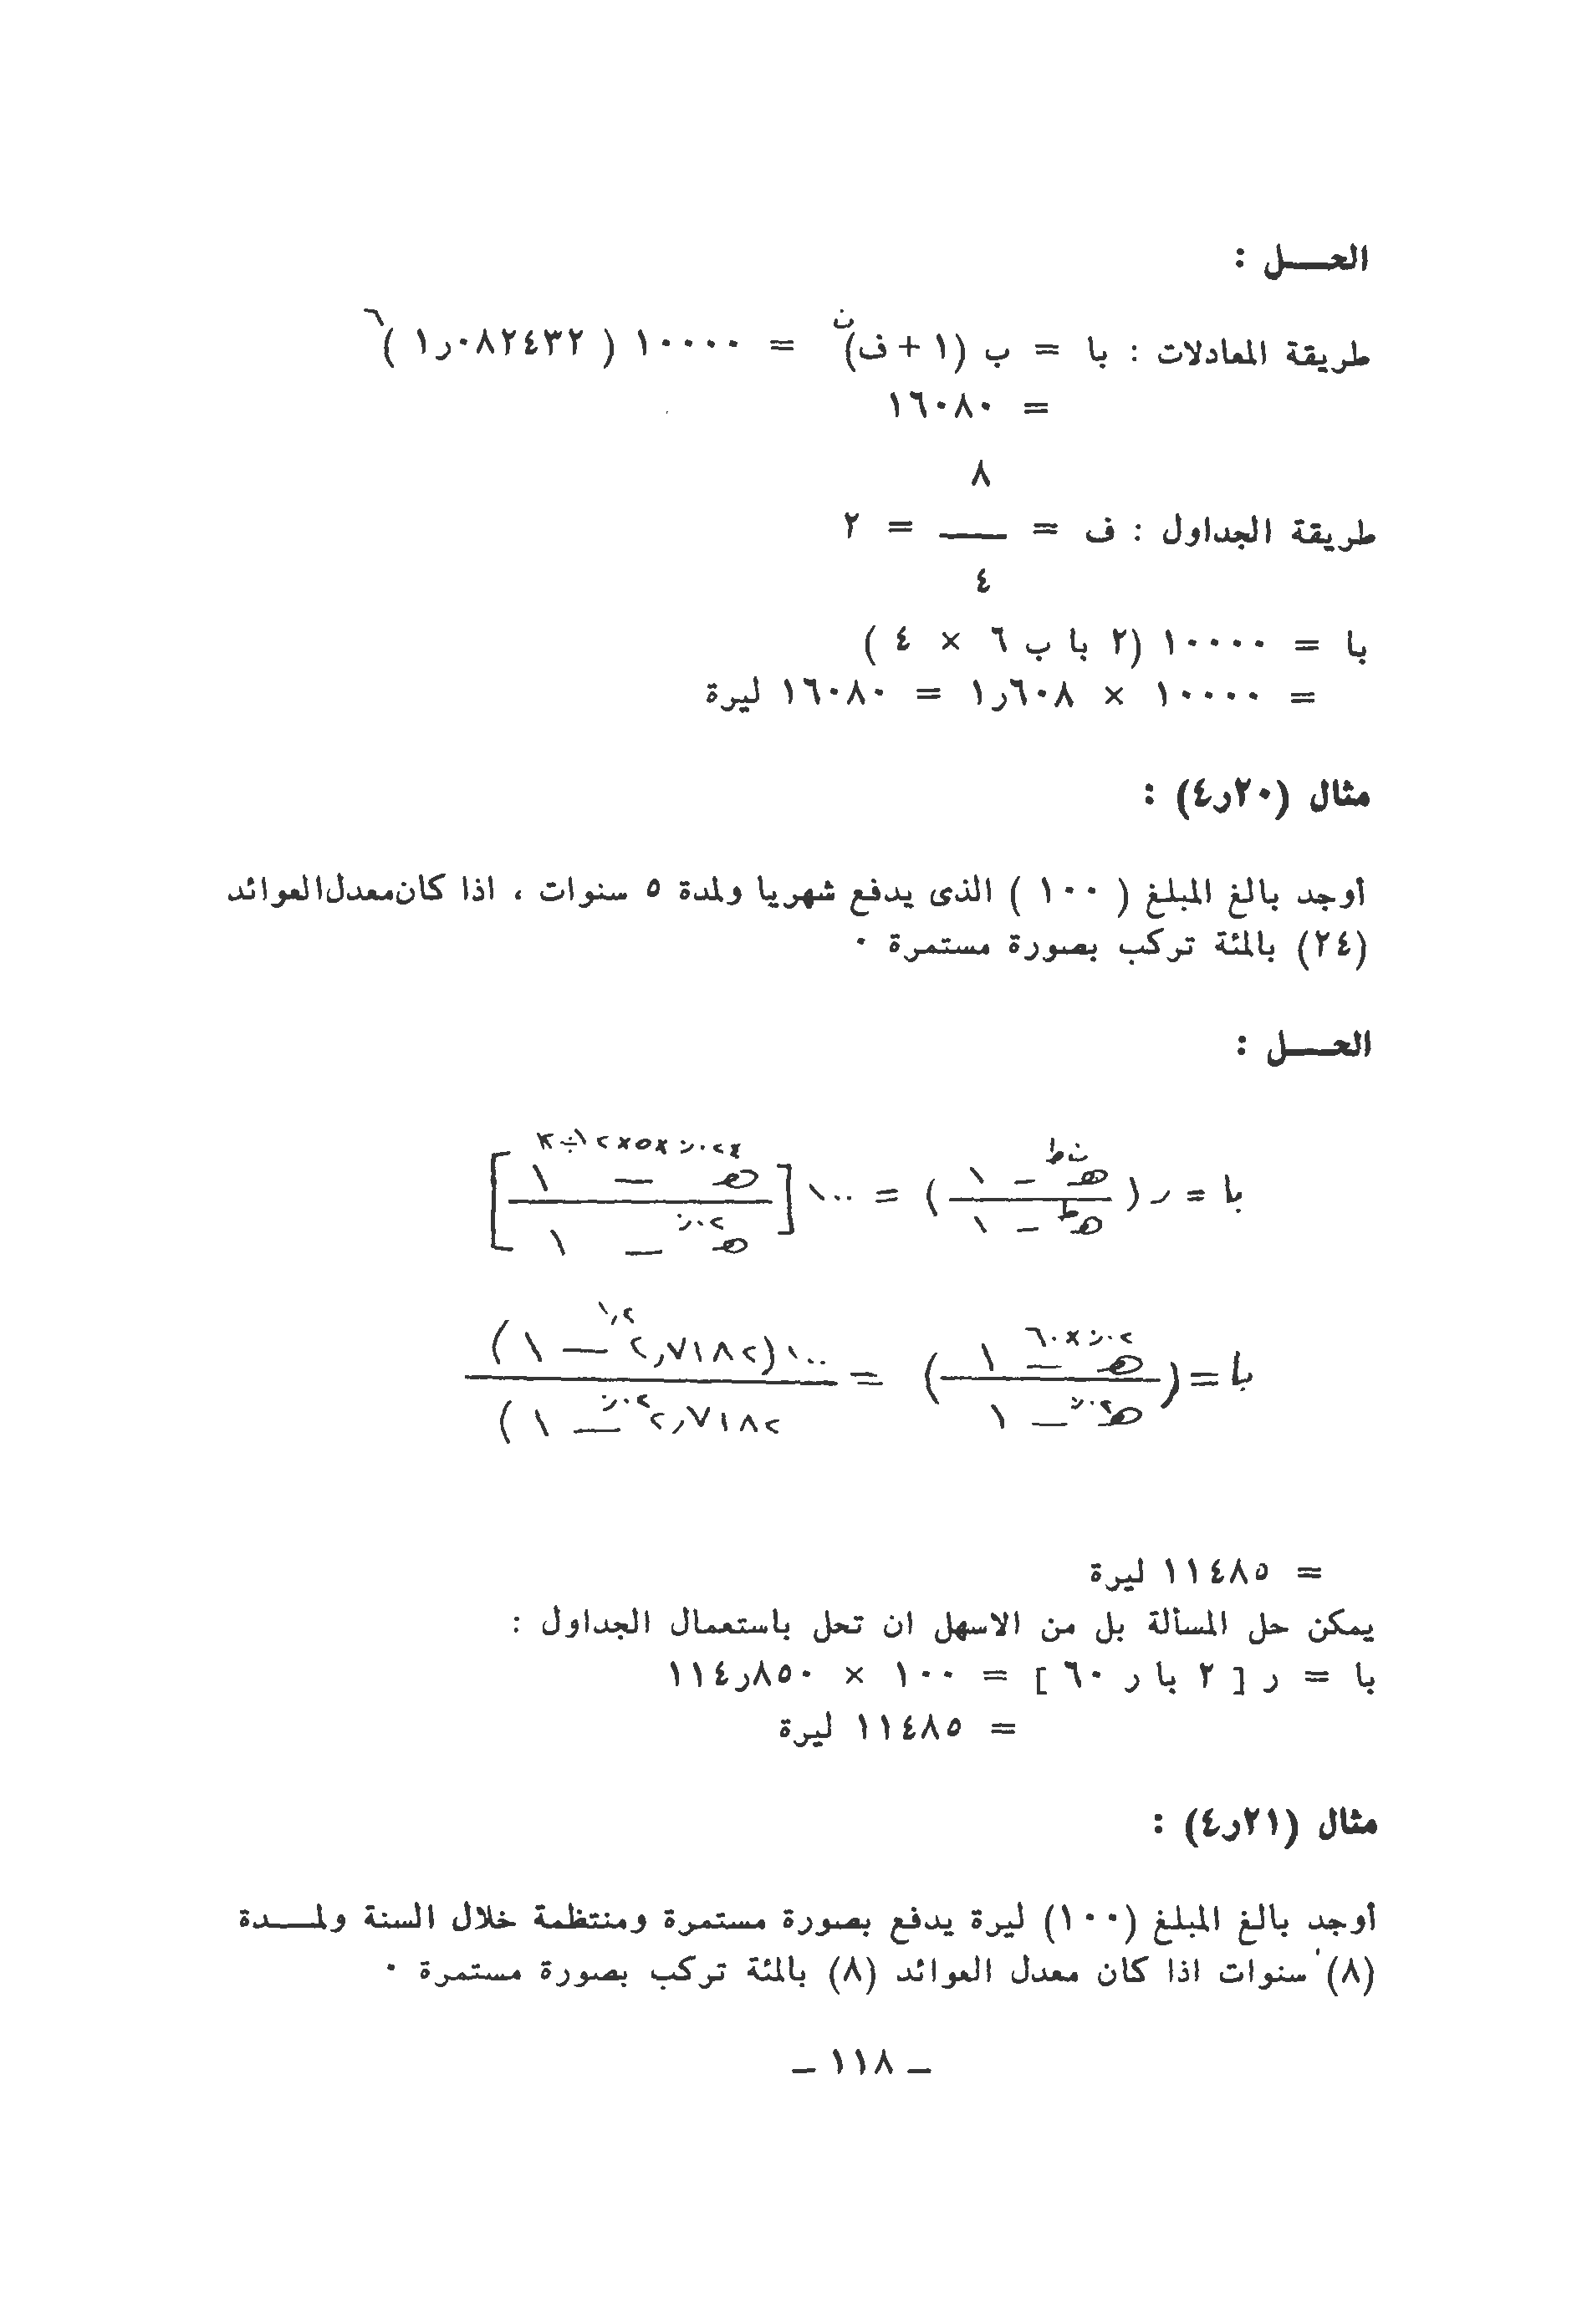 الحـــل :
طريقة المعادلات : با = ب (١ + ف)ن = ١٠٠٠٠ ( ٠٨٢٤٣٢ر١ )٦
= ١٦٠٨٠
٨
طريقة الجداول : ف = ــــ = ٢
٤
با = ١٠٠٠٠ (٢ با ب ٦ × ٤ )
= ١٠٠٠٠ × ٦٠٨ر١ = ١٦٠٨٠ ليرة
مثال (٢٠ر٤) :
أوجد بالغ المبلغ ( ١٠٠ ) الذى يدفع شهريا ولمدة ٥ سنوات ، اذا كان معدل العوائد
(٢٤) بالمئة تركب بصورة مستمرة ٠
الحـــل :
٠٢٤٪ × ٥ × ١٢ ÷ ١٢
با = ر ( هـ ن ط – ١ ) = ١٠٠ [ هـ – ١ ]
هـ ط – ١ هـ ٠٢٪ – ١
با = ( هـ ٠٢٪ × ٦٠ – ١ ) = ١٠٠ (٢,٧١٨٢ ١,٢ – ١ )
هـ ٠٢٪ – ١ ٢,٧١٨٢ ٠٢٪ – ١ )
= ١١٤٨٥ ليرة
يمكن حل المسألة بل من الاسهل ان تحل باستعمال الجداول :
با = ر [ ٢ با ر ٦٠ ] = ١٠٠ × ٨٥٠ر١١٤
= ١١٤٨٥ ليرة
مثال (٢١ر٤) :
أوجد بالغ المبلغ (١٠٠) ليرة يدفع بصورة مستمرة ومنتظمة خلال السنة ولمـــدة
(٨) سنوات اذا كان معدل العوائد (٨) بالمئة تركب بصورة مستمرة ٠
– ١١٨ –